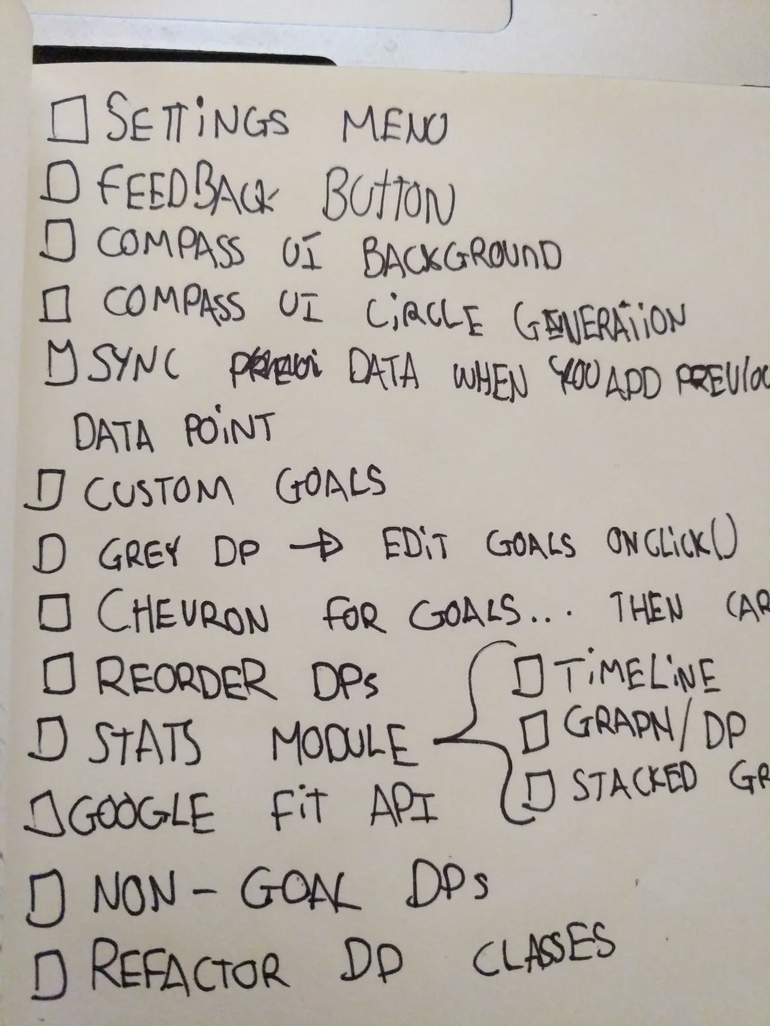 SETTINGS MENU
FEEDBACK BUTTON
COMPASS UI BACKGROUND
COMPASS UI CIRCLE GENERATION
SYNC DATA WHEN YOU ADD PREVIOU
DATA POINT
CUSTOM GOALS
GREY DP → EDIT GOALS ONCLICK()
CHEVRON FOR GOALS... THEN CAR
REORDER DPs
TIMELINE
STATS MODULE
GRAPH/DP
STACKED GR
GOOGLE FIT API
NON-GOAL DPs
REFACTOR DP CLASSES